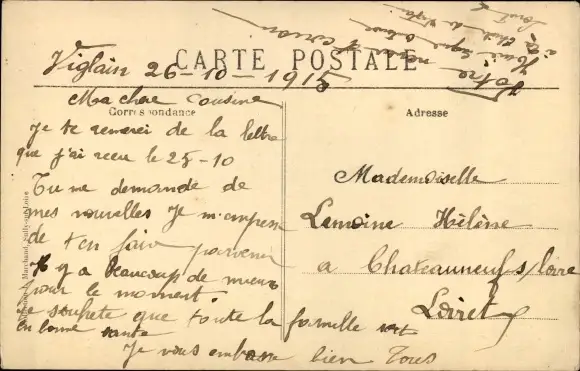 CARTE POSTALE
Viglain 26-10-1915
Correspondance
Adresse
Ma chere cousine
Je te remerci de la lettre
que j'ai recu le 25-10
Tu me demande de
mes nouvelles Je m'empresse
de t'en faire parvenir
Il y a beaucoup de mieux
pour le moment
je souhete que toute la famille soit
en bonne sante
Je vous embrasse bien Tous
Mademoiselle
Lemoine Hélène
a Chateauneuf s/Loire
Loiret
Marchand, Sully-sur-Loire
Votre